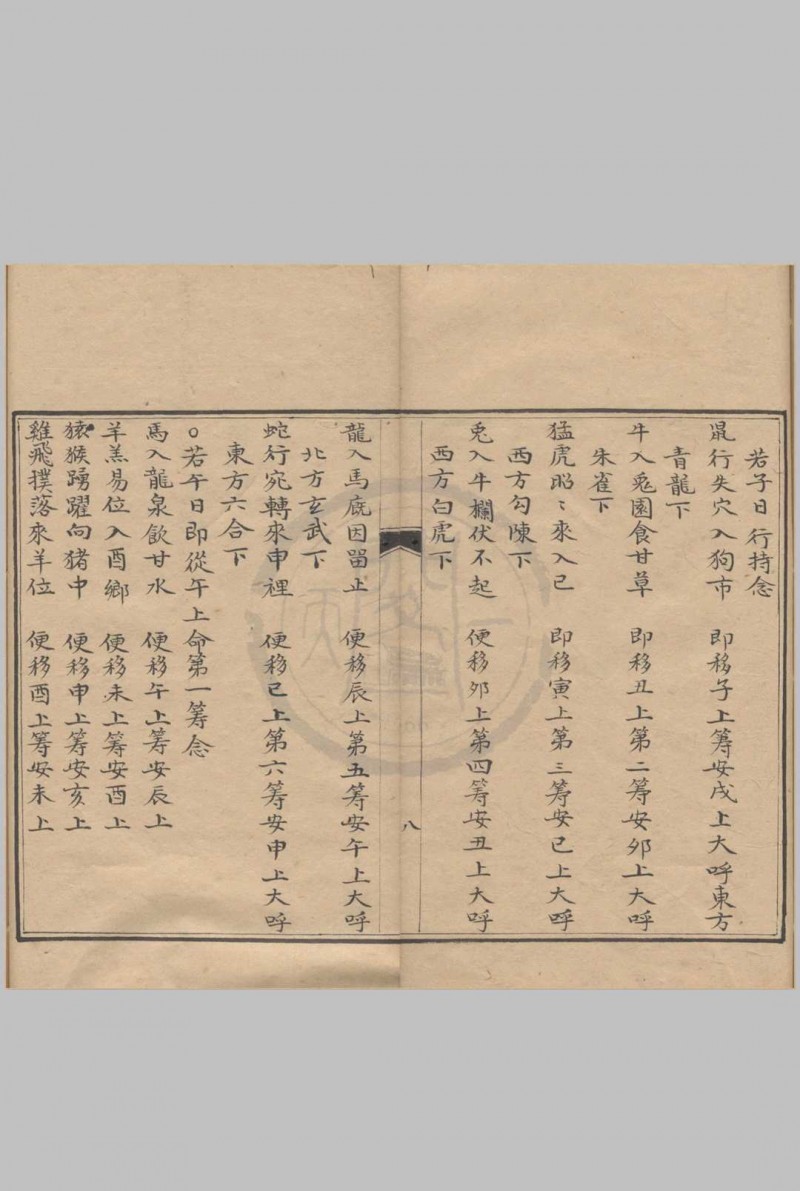 若子日行持念
鼠行失穴入狗市　即移子上籌安戌上大呼東方
青龍下
牛入兎園食甘草　即移丑上第二籌安夘上大呼
朱雀下
猛虎昭〻來入巳　即移寅上第三籌安巳上大呼
西方勾陳下
兎入牛欄伏不起　便移夘上第四籌安丑上大呼
西方白虎下
八
龍入馬廐因留止　便移辰上第五籌安午上大呼
北方玄武下
蛇行宛轉來申裡　便移巳上第六籌安申上大呼
東方六合下
○若午日即從午上命第一籌念
馬入龍泉飲甘水　便移午上籌安辰上
羊羔易位入酉鄉　便移未上籌安酉上
猿猴踴躍向猪中　便移申上籌安亥上
雞飛撲落來羊位　便移酉上籌安未上